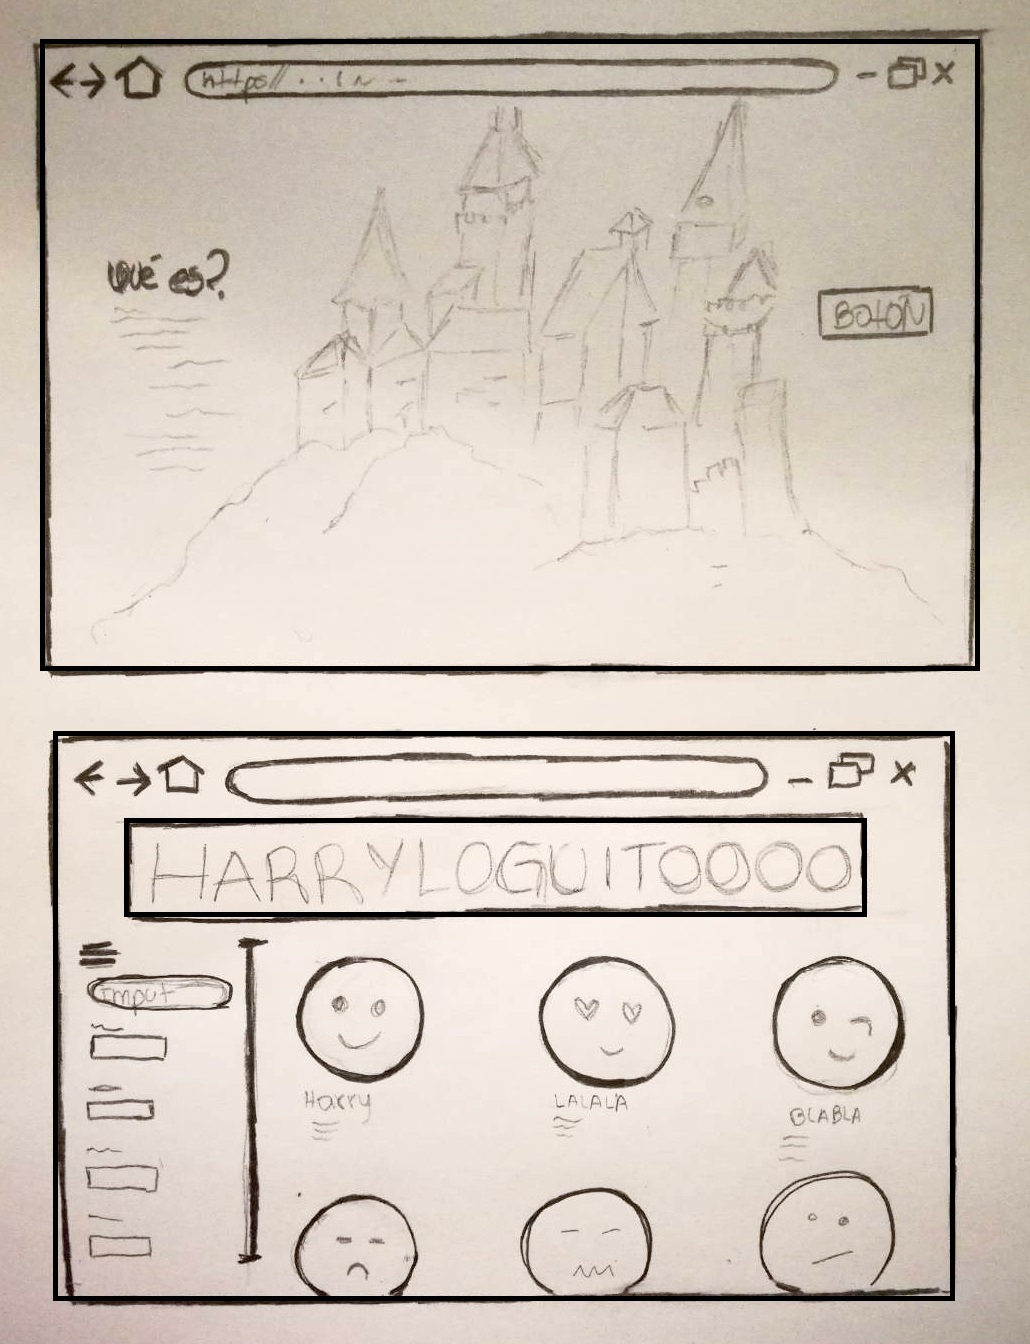 https//
Qué es?
BOtON
HARRYLOGUITOOOO
Imput
Harry
LALALA
BLABLA